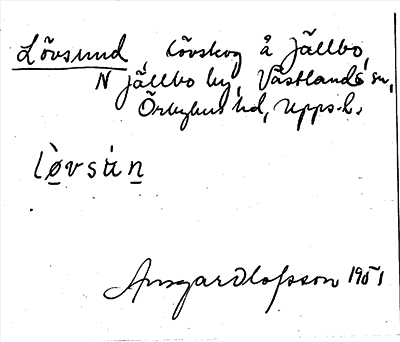 Lövsund, lövskog å Jällbo,
N Jällbo by, Västlands sn,
Örbyhus hd, Upps. l.
lø̀vsún
Ansgar Olofsson 1951